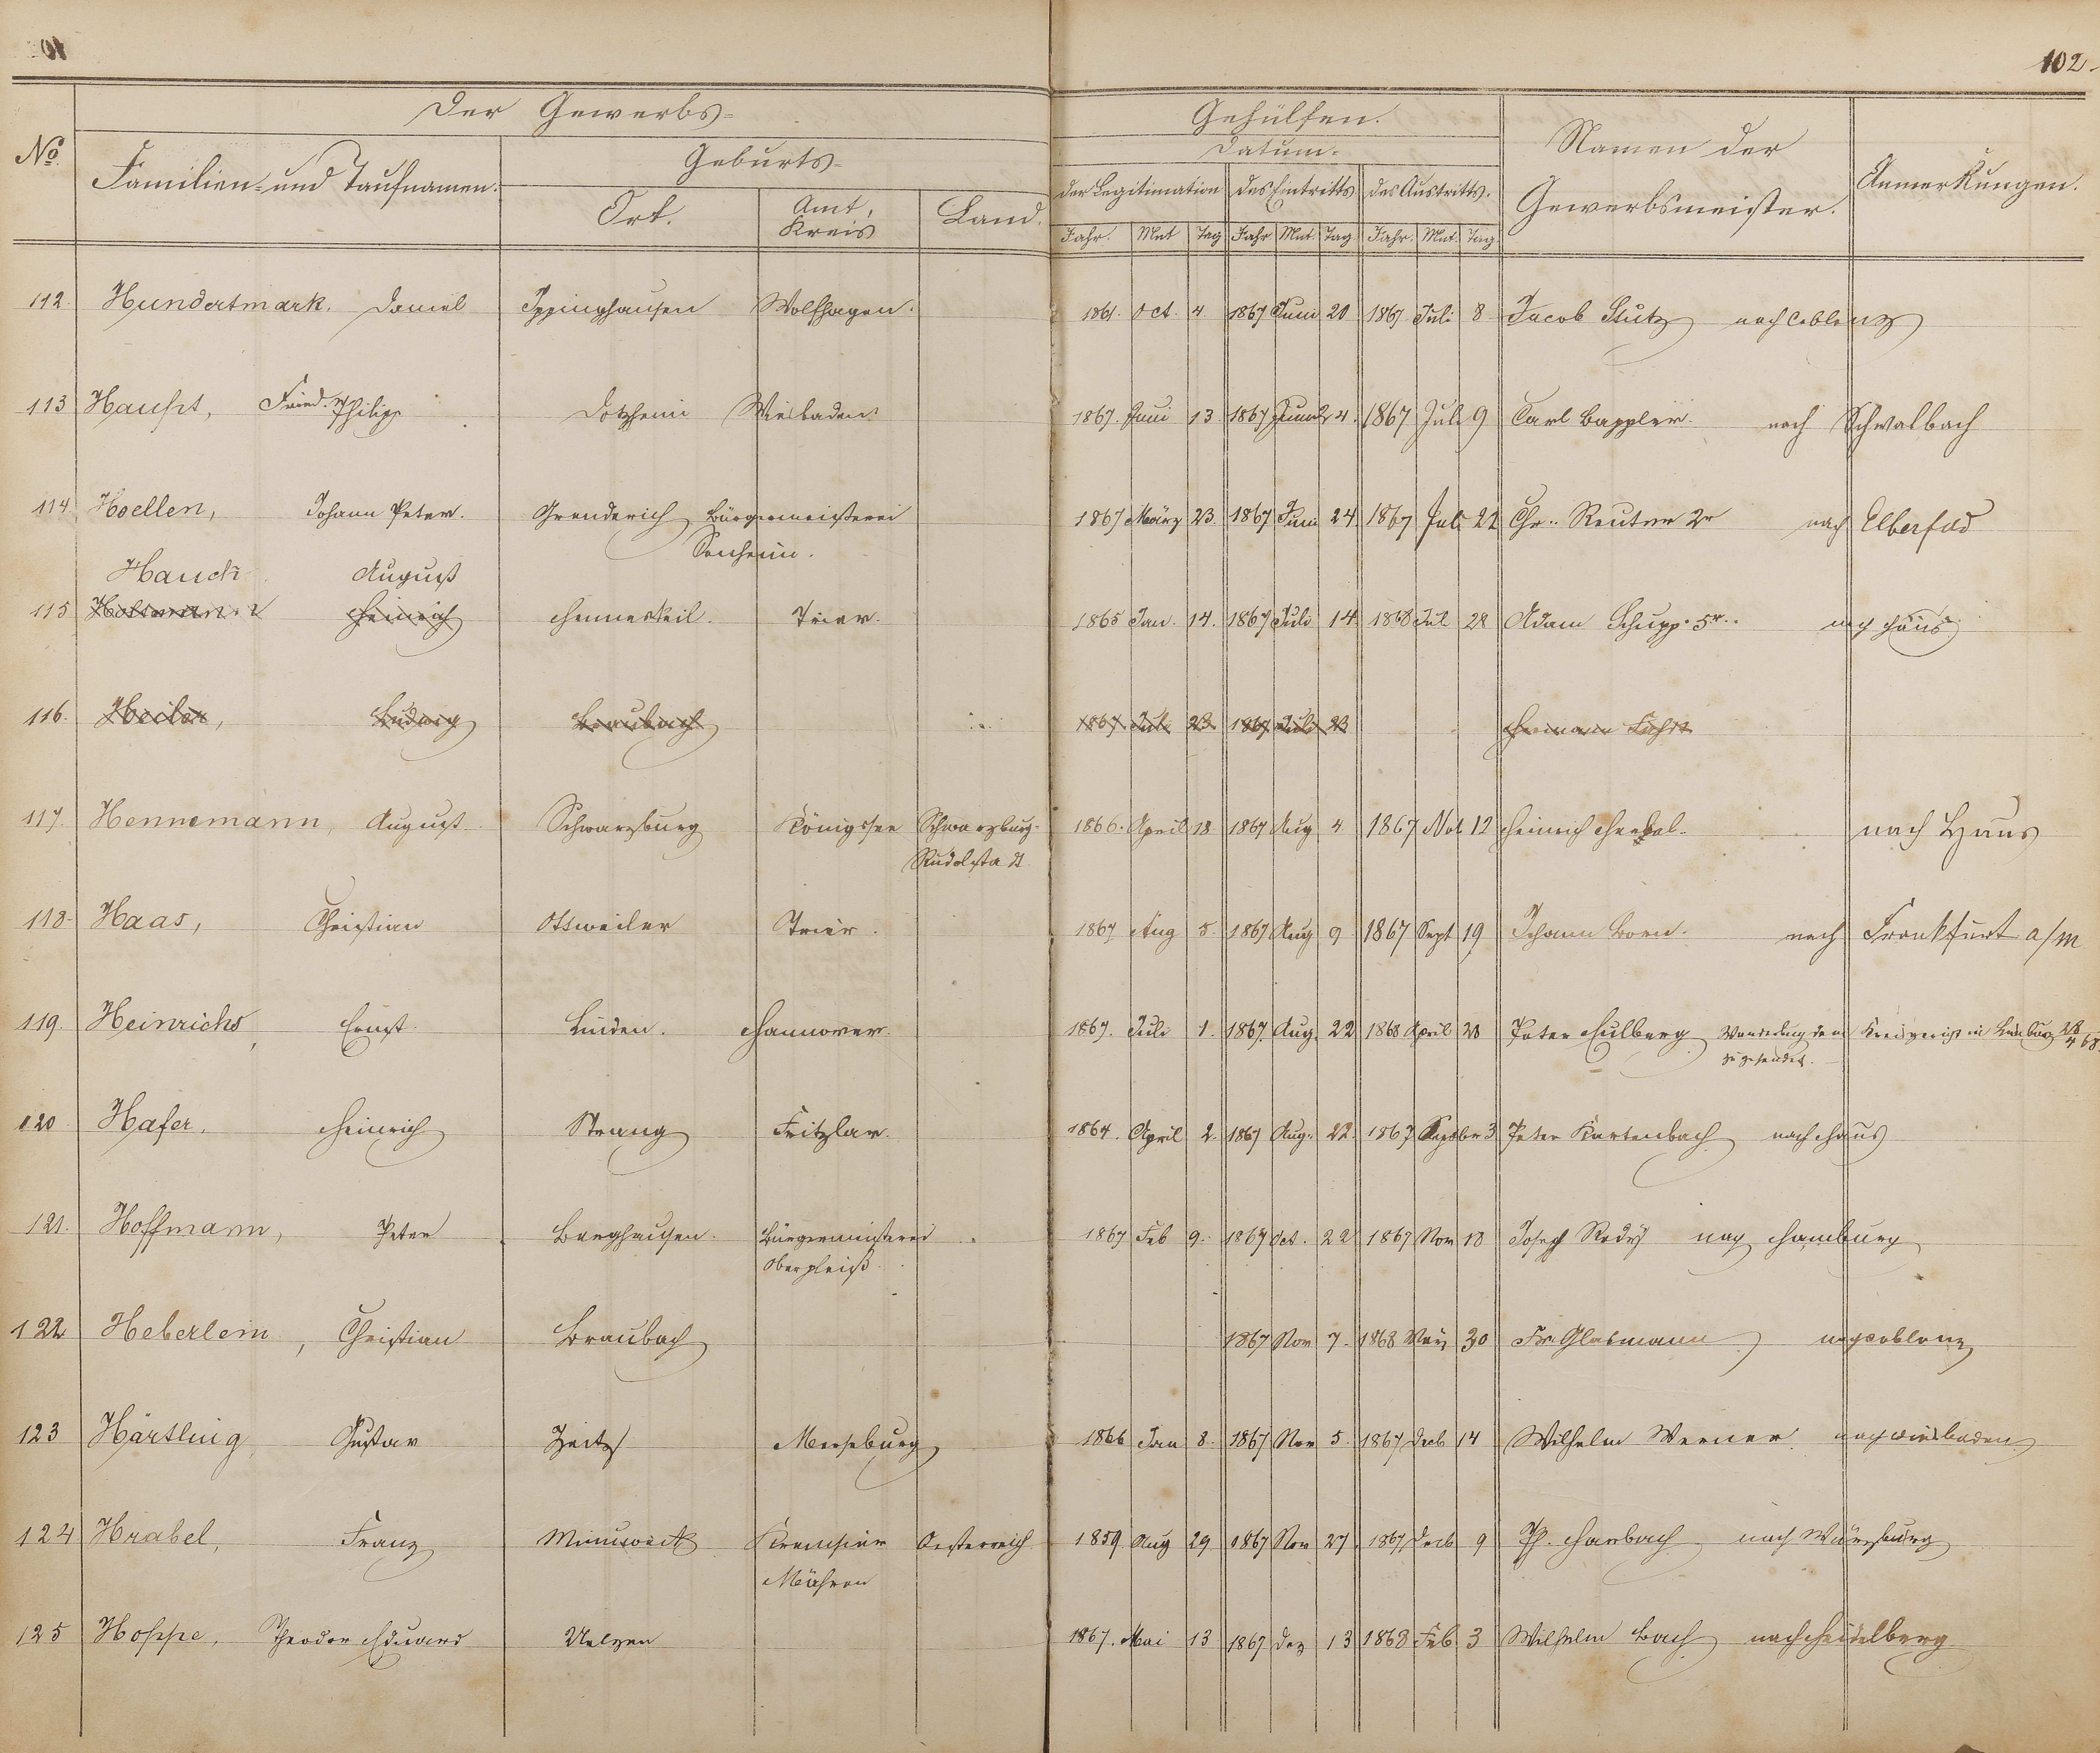 102.
Der Gewerbs-
Gehülfen.
No.
Familien- und Taufnamen.
Geburts-
Datum.
Namen der Gewerbsmeister.
Anmerkungen.
Ort. Amt, Kreis Land.
der Legitimation des Eintritts des Austritts.
Jahr. Mnt Tag Jahr Mnt. Tag Jahr. Mnt. Tag.
112. Hundertmark. Daniel Ippinghausen Wolfhagen. 1861. Oct. 4. 1867 Juni 20 1867 Juli 8 Jacob Stutz nach Coblenz
113 Haupt, Fried. Philipp Dotzheim Wiesbaden. 1867. Juni 13 1867 Juni 24. 1867 Juli 9 Carl Bappler. nach Schwalbach
114. Hoellen, Johann Peter. Grenderich Bürgermeisterei 1867 März 23. 1867 Juni 24 1867 Juli 22 Chr. Reuter 2r nach Elberfeld
Senheim.
Hauch August
115 Heinrich Hermeskeil. Trier. 1865 Jan. 14. 1867 Juli 14 1868 Jul 28 Adam Schupp. 5r. nach Haus
116. Ludwig Braubach 1867 Juli 23 1867 Juli 23 Hermann
117. Hennemann, August Schwarzburg Königssee Schwarzburg- 1866. April 18 1867 Aug 4 1867 Nov 12 Heinrich nach Haus
Rudolstadt
118. Haas, Christian Ottweiler Trier. 1867 Aug 5. 1867 Aug 9 1867 Sept 19 Johann Born. nach Frankfurt a/M
119. Heinrichs, Ernst. Linden. Hannover. 1867. Juli 1. 1867. Aug. 22 1868 April 28 Peter Eulberg Wanderbuch dem Kreisgericht in Limburg 28/4 68.
zugesendet.
120 Hafer. Heinrich Strang Fritzlar. 1864. April 2. 1867 Aug. 22. 1867 September 3 Peter Kartenbach nach Haus
121. Hoffmann, Peter Berghausen. Bürgermeisterei 1867 Feb 9. 1867 Oct. 22 1867 Nov 18 Joseph Rody nach Hamburg
Oberpleiß
122 Heberlein, Christian Braubach 1867 Nov 7. 1868 März 30 Fr. Glasmann nach Coblenz
123 Härtling Gustav Zeitz Merseburg 1866 Jan 8. 1867 Nov 5. 1867 Decb 14 Wilhelm Werner nach Wiesbaden
124 Hrabel, Franz Kremsier Oesterreich 1859 Aug 29 1867 Nov 27. 1867 Decb 9 Ph. Harbach nach Würzburg
Mähren
125 Hoppe, Theodor Eduard Uelzen 1867. Mai 13 1867 Dez 13 1868 Feb 3 Wilhelm Bach nach Heidelberg